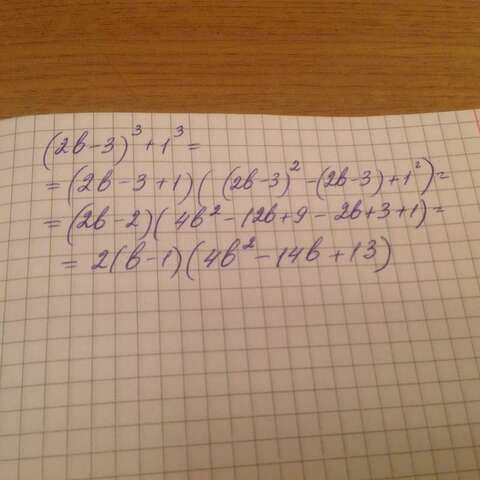 (2b-3)³+1³=
=(2b-3+1)((2b-3)²-(2b-3)+1²)=
=(2b-2)(4b²-12b+9-2b+3+1)=
=2(b-1)(4b²-14b+13)